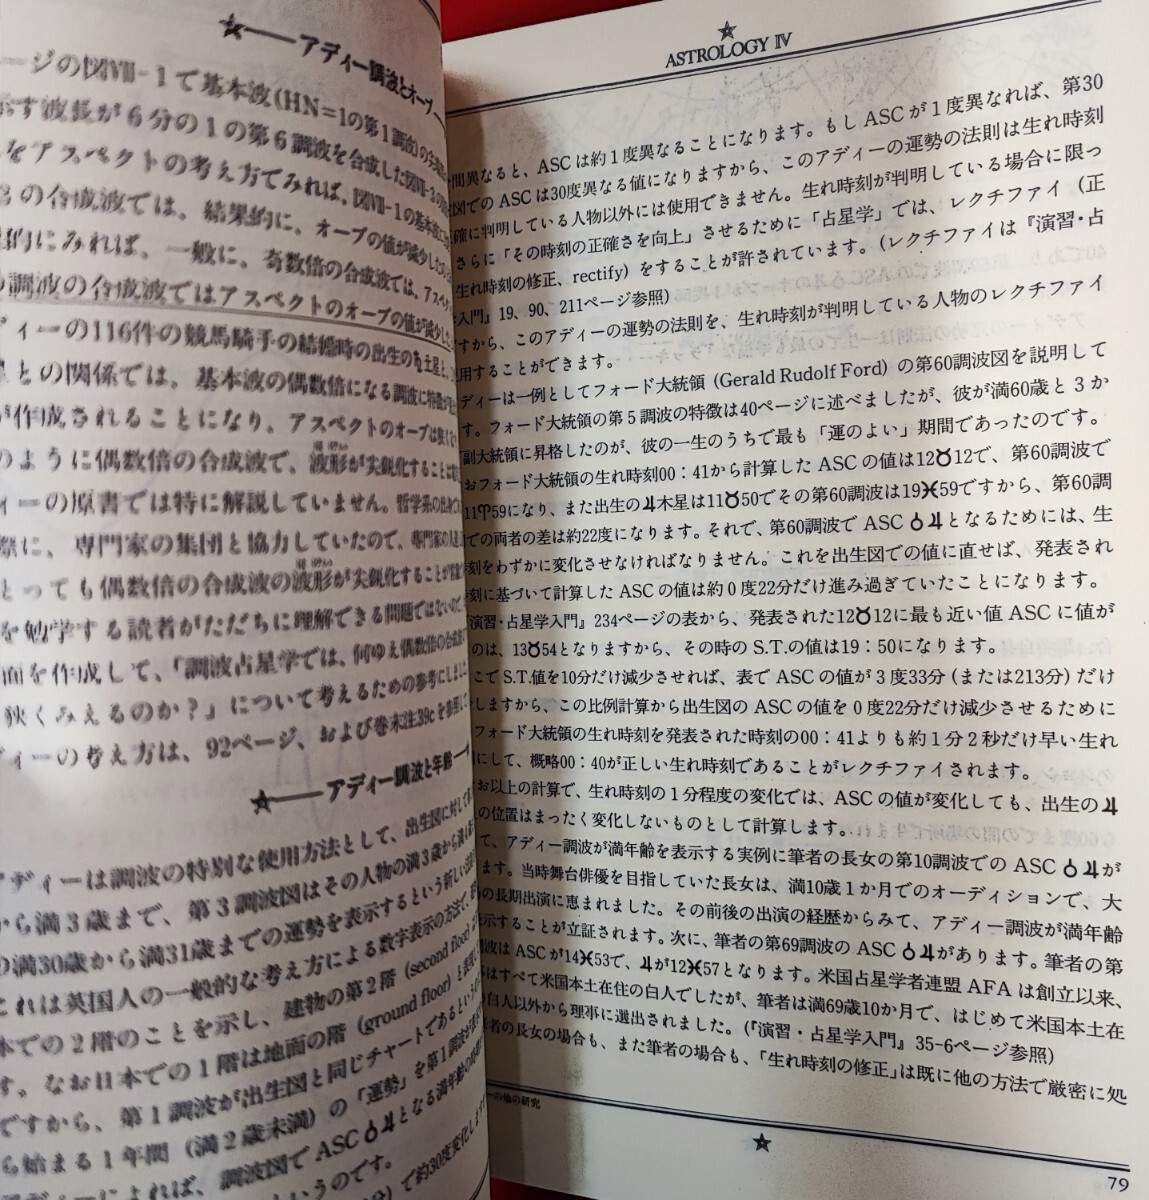 アディー調波とオーブ
ージの図Ⅶ-1で基本波(HN=1の第1調波)の
示す波長が6分の1の第6調波を合成した図Ⅶ-3の
をアスペクトの考え方でみれば、図Ⅶ-1の基本波に
3の合成波では、結果的に、オーブの値が減少した
的にみれば、一般に、奇数倍の合成波では、アスペ
調波の合成波ではアスペクトのオーブの値が減少し
ディーの116件の競馬騎手の結婚時の出生の
との関係では、基本波の偶数倍になる調波に特徴が
が作成されることになり、アスペクトのオーブは狭く
のように偶数倍の合成波で、波形が尖鋭化することは
ィーの原書では特に解説していません。哲学系の出身
際に、専門家の集団と協力していたので、専門家の
とっても偶数倍の合成波の波形が尖鋭化することが
を勉学する読者がただちに理解できる問題ではないので、
面を作成して、「調波占星学では、何ゆえ偶数倍の合成波
狭くみえるのか?」について考えるための参考にしま
ディーの考え方は、92ページ、および巻末注39cを参照
アディー調波と年齢
アディーは調波の特別な使用方法として、出生図に対して
から満3歳まで、第3調波図はその人物の満3歳から満4
の満30歳から満31歳までの運勢を表示するという新しい
これは英国人の一般的な考え方による数字表示の方法で、
本での2階のことを示し、建物の第2階(second floor)
す。なお日本での1階は地面の階(ground floor)と表
ですから、第1調波が出生図と同じチャートであるという
ら始まる1年間(満2歳未満)の「運勢」を第1調波が
ディーによれば、調波図でASC☌♃となる満年齢の時
というのです。
分)で約30度変化します
ASTROLOGY Ⅳ
間異なると、ASCは約1度異なることになります。もしASCが1度異なれば、第30
図でのASCは30度異なる値になりますから、このアディーの運勢の法則は生れ時刻
確に判明している人物以外には使用できません。生れ時刻が判明している場合に限っ
さらに「その時刻の正確さを向上」させるために「占星学」では、レクチファイ(正
生れ時刻の修正、rectify)をすることが許されています。(レクチファイは『演習・占
入門』19、90、211ページ参照)
すから、このアディーの運勢の法則を、生れ時刻が判明している人物のレクチファイ
用することができます。
ディーは一例としてフォード大統領(Gerald Rudolf Ford)の第60調波図を説明して
す。フォード大統領の第5調波の特徴は40ページに述べましたが、彼が満60歳と3か
副大統領に昇格したのが、彼の一生のうちで最も「運のよい」期間であったのです。
おフォード大統領の生れ時刻00:41から計算したASCの値は12♉12で、第60調波で
11♈59になり、また出生の♃木星は11♉50でその第60調波は19♓59ですから、第60調
での両者の差は約22度になります。それで、第60調波でASC☌♃となるためには、生
刻をわずかに変化させなければなりません。これを出生図での値に直せば、発表され
刻に基づいて計算したASCの値は約0度22分だけ進み過ぎていたことになります。
演習・占星学入門』234ページの表から、発表された12♉12に最も近い値ASCに値が
のは、13♉54となりますから、その時のS.T.の値は19:50になります。
こでS.T.値を10分だけ減少させれば、表でASCの値が3度33分(または213分)だけ
しますから、この比例計算から出生図のASCの値を0度22分だけ減少させるために
フォード大統領の生れ時刻を発表された時刻の00:41よりも約1分2秒だけ早い生れ
にして、概略00:40が正しい生れ時刻であることがレクチファイされます。
お以上の計算で、生れ時刻の1分程度の変化では、ASCの値が変化しても、出生の♃
の位置はまったく変化しないものとして計算します。
て、アディー調波が満年齢を表示する実例に筆者の長女の第10調波でのASC☌♃が
ます。当時舞台俳優を目指していた長女は、満10歳1か月でのオーディションで、大
の長期出演に恵まれました。その前後の出演の経歴からみて、アディー調波が満年齢
示することが立証されます。次に、筆者の第69調波のASC☌♃があります。筆者の第
調波はASCが14♓53で、♃が12♓57となります。米国占星学者連盟AFAは創立以来、
はすべて米国本土在住の白人でしたが、筆者は満69歳10か月で、はじめて米国本土在
白人以外から理事に選出されました。(『演習・占星学入門』35-6ページ参照)
者の長女の場合も、また筆者の場合も、「生れ時刻の修正」は既に他の方法で厳密に処
の他の研究
79